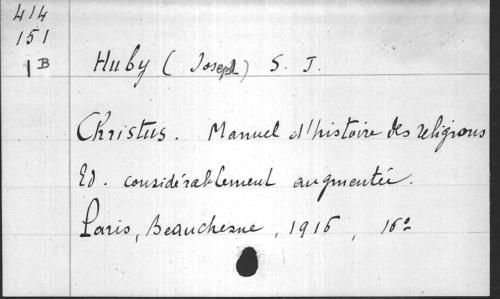 414
151
1 B
Huby (Joseph) S. J.
Christus. Manuel d'histoire des religions
Ed. considérablement augmentée.
Paris, Beauchesne, 1916, 16º